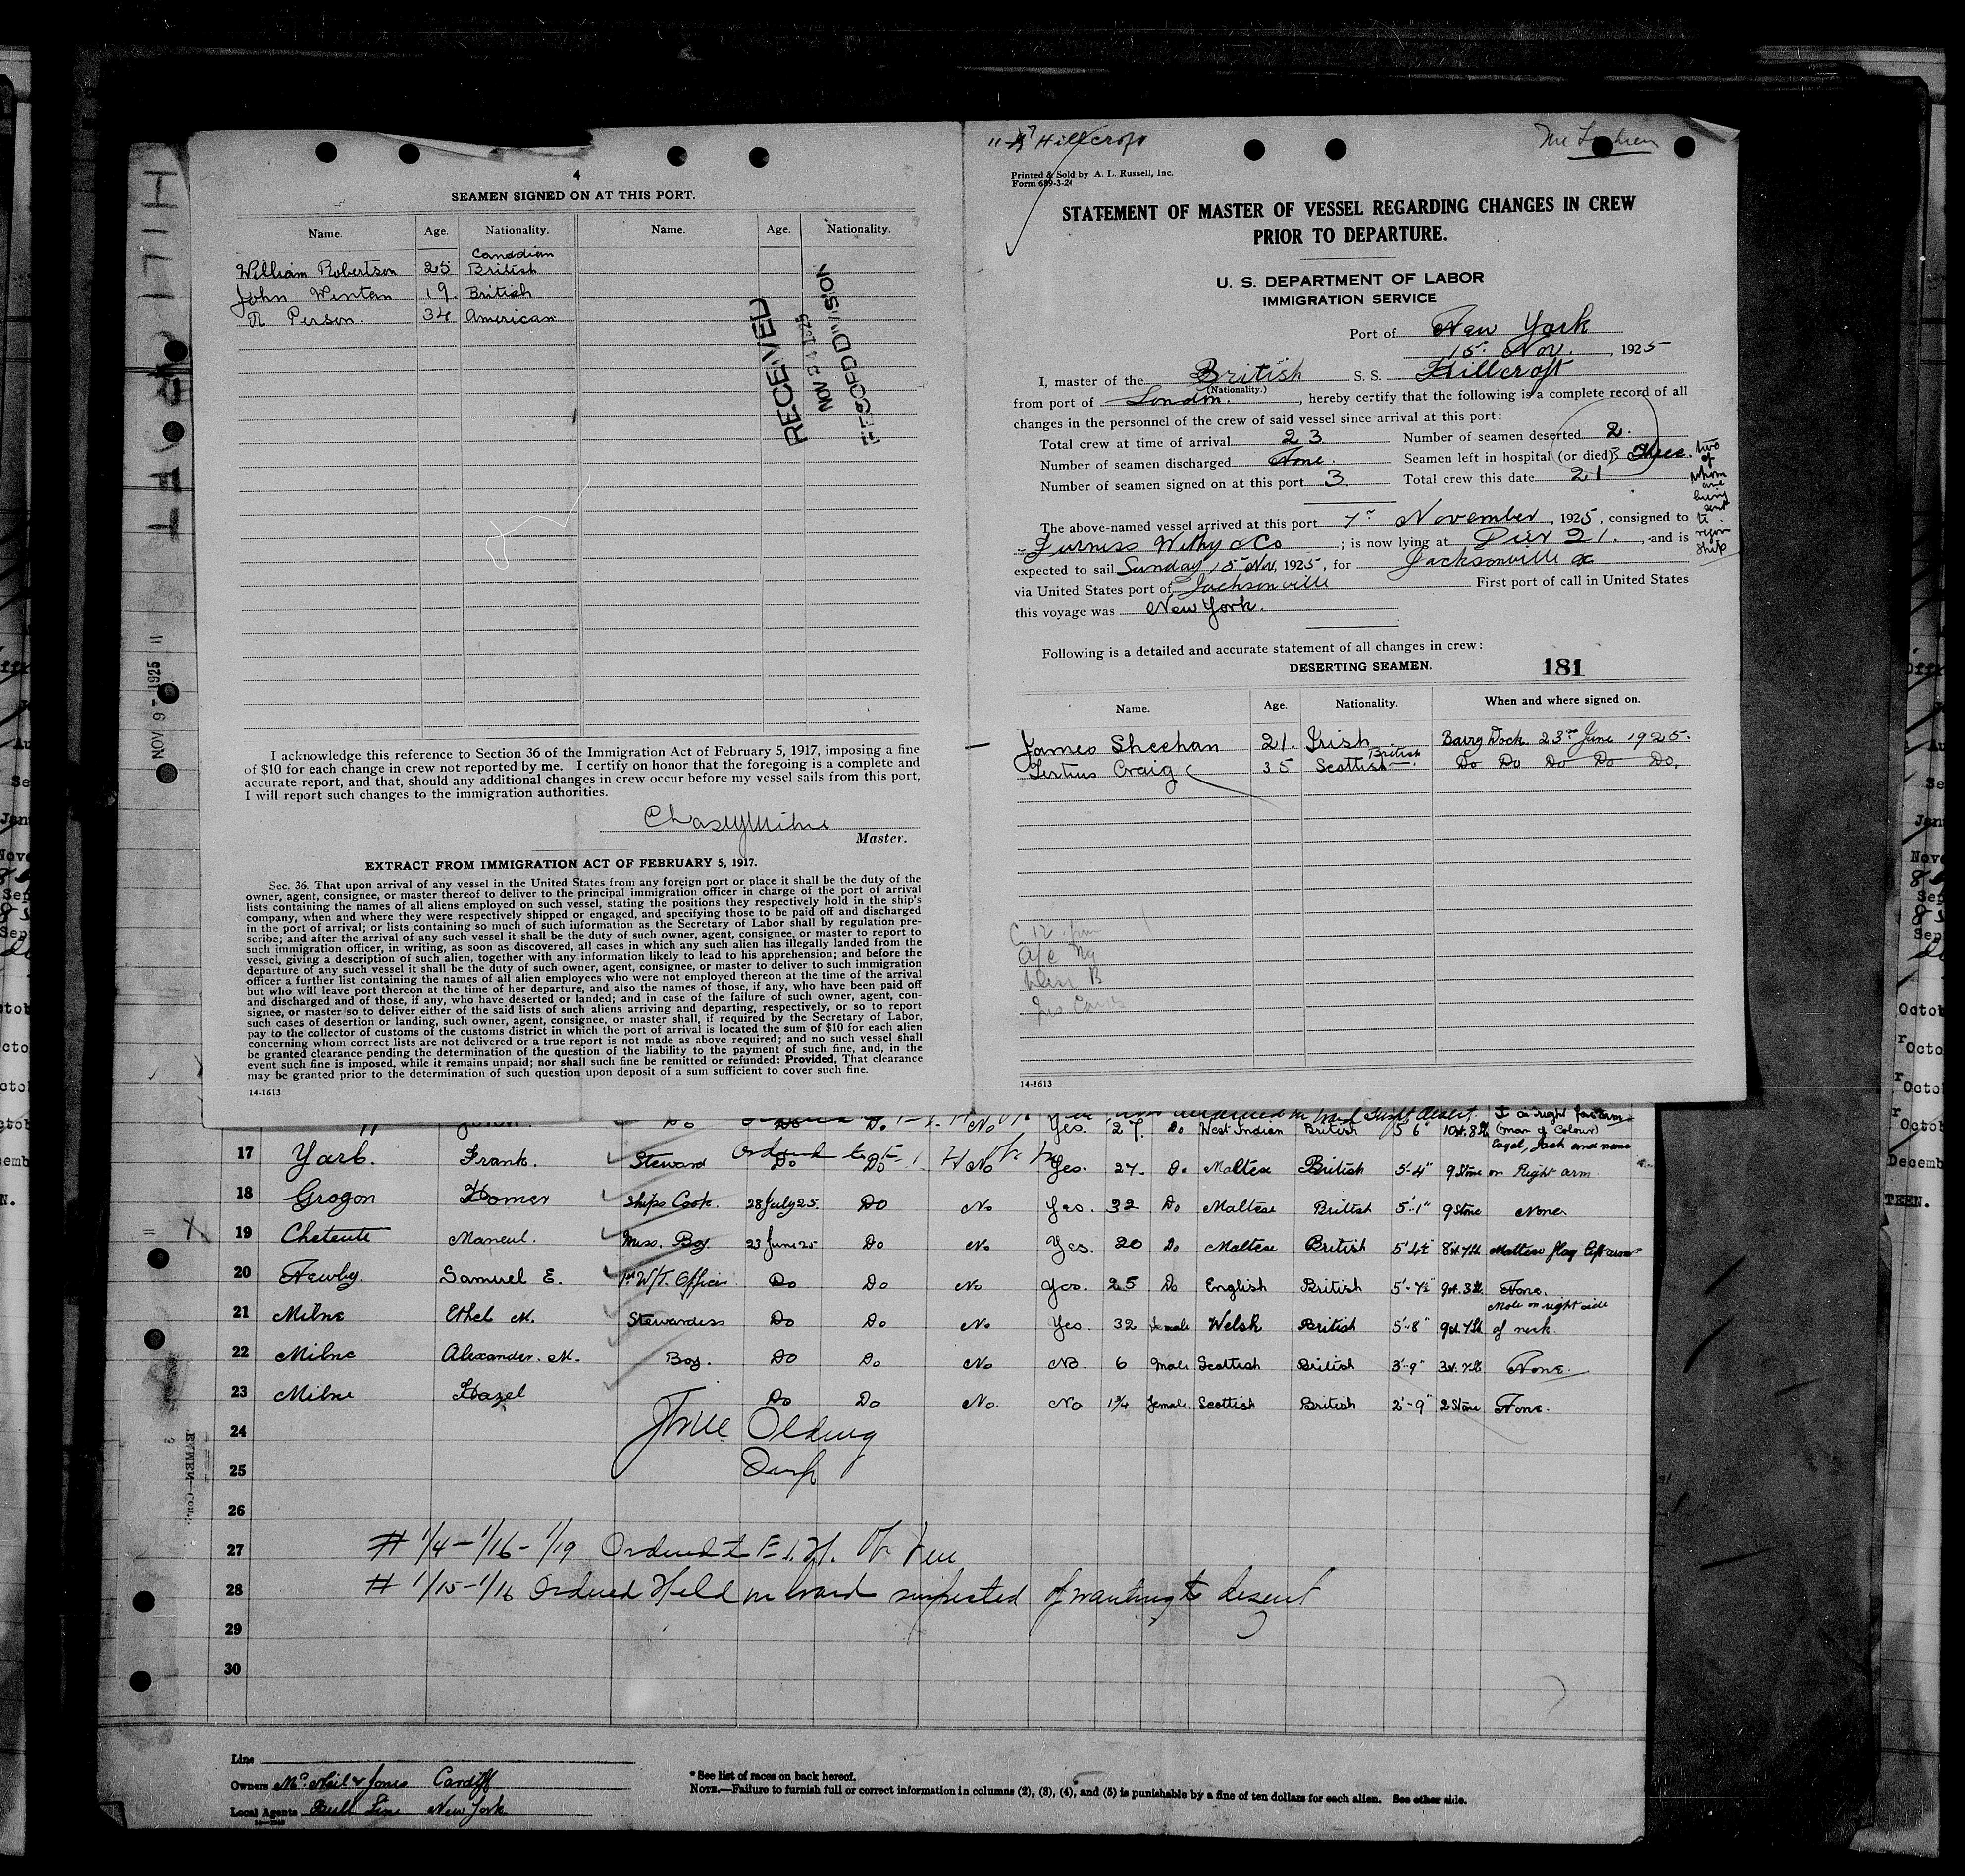 4
SEAMEN SIGNED ON AT THIS PORT.
Name. Age. Nationality. Name. Age. Nationality.
William Robertson 25 Canadian British
John Winton 19. British
R Person. 34 American
RECEIVED
NOV 1925
RECORD DIVISION
I acknowledge this reference to Section 36 of the Immigration Act of February 5, 1917, imposing a fine
of $10 for each change in crew not reported by me. I certify on honor that the foregoing is a complete and
accurate report, and that, should any additional changes in crew occur before my vessel sails from this port,
I will report such changes to the immigration authorities.
Master.
EXTRACT FROM IMMIGRATION ACT OF FEBRUARY 5, 1917.
Sec. 36. That upon arrival of any vessel in the United States from any foreign port or place it shall be the duty of the
owner, agent, consignee, or master thereof to deliver to the principal immigration officer in charge of the port of arrival
lists containing the names of all aliens employed on such vessel, stating the positions they respectively hold in the ship's
company, when and where they were respectively shipped or engaged, and specifying those to be paid off and discharged
in the port of arrival; or lists containing so much of such information as the Secretary of Labor shall by regulation pre-
scribe; and after the arrival of any such vessel it shall be the duty of such owner, agent, consignee, or master to report to
such immigration officer, in writing, as soon as discovered, all cases in which any such alien has illegally landed from the
vessel, giving a description of such alien, together with any information likely to lead to his apprehension; and before the
departure of any such vessel it shall be the duty of such owner, agent, consignee, or master to deliver to such immigration
officer a further list containing the names of all alien employees who were not employed thereon at the time of the arrival
but who will leave port thereon at the time of her departure, and also the names of those, if any, who have been paid off
and discharged and of those, if any, who have deserted or landed; and in case of the failure of such owner, agent, con-
signee, or master so to deliver either of the said lists of such aliens arriving and departing, respectively, or so to report
such cases of desertion or landing, such owner, agent, consignee, or master shall, if required by the Secretary of Labor,
pay to the collector of customs of the customs district in which the port of arrival is located the sum of $10 for each alien
concerning whom correct lists are not delivered or a true report is not made as above required; and no such vessel shall
be granted clearance pending the determination of the question of the liability to the payment of such fine, and, in the
event such fine is imposed, while it remains unpaid; nor shall such fine be remitted or refunded: Provided, That clearance
may be granted prior to the determination of such question upon deposit of a sum sufficient to cover such fine.
14-1613
Hillcroft
Printed & Sold by A. L. Russell, Inc.
Form 689-3-24
STATEMENT OF MASTER OF VESSEL REGARDING CHANGES IN CREW
PRIOR TO DEPARTURE.
U. S. DEPARTMENT OF LABOR
IMMIGRATION SERVICE
Port of New York
15th Nov. , 1925
I, master of the British S. S. Hillcroft
(Nationality.)
from port of London. , hereby certify that the following is a complete record of all
changes in the personnel of the crew of said vessel since arrival at this port:
Total crew at time of arrival 23 Number of seamen deserted 2.
Number of seamen discharged None. Seamen left in hospital (or died) Three. two of whom are being sent to rejoin ship
Number of seamen signed on at this port 3 Total crew this date 21
The above-named vessel arrived at this port 7th November , 1925, consigned to
Furness Withy & Co ; is now lying at Pier 21. , and is
expected to sail Sunday 15 Nov, 1925, for Jacksonville
via United States port of Jacksonville First port of call in United States
this voyage was New York.
Following is a detailed and accurate statement of all changes in crew:
DESERTING SEAMEN. 181
Name. Age. Nationality. When and where signed on.
James Sheehan 21. Irish Barry Dock 23rd June 1925.
Tertius Craig 35 Scottish British Do Do Do Do Do.
14-1613
HILLCROFT
NOV 9 - 1925
Do Do Do No Yes. 27. Do West Indian British 5' 6" (man of Colour) on right forearm
17 Yarb. Frank. Steward Do Do No Yes. 27. Do Maltese British 5'-4" 9 Stone on Right arm
18 Grogon Homer Ships Cook. 28 July 25. Do No Yes. 32 Do Maltese British 5'-1" 9 Stone None
19 Chetcuti Maneul. Mess. Boy. 23 June 25 Do No Yes. 20 Do Maltese British Maltese flag left arm
20 Newby. Samuel E. 1st W/T. Officer Do Do No Yes. 25 Do English British 5'-7½" None.
21 Milne Ethel M. Stewardess Do Do No Yes 32 Female Welsh British 5'-8" Mole on right side of neck.
22 Milne Alexander. M. Boy. Do Do No No 6 Male Scottish British 3'-9" None.
23 Milne Hazel Do Do No. No 1¾ Female. Scottish British 2'-9" 2 Stone None.
24
25
26
27 # 1/4 - 1/16 - 1/19 Ordered to E.I.H.
28 # 1/15 - 1/16 Ordered Held on board suspected of wanting to desert
29
30
Line
Owners McNeil & Jones Cardiff
Local Agents Bull Line New York
* See list of races on back hereof.
NOTE.—Failure to furnish full or correct information in columns (2), (3), (4), and (5) is punishable by a fine of ten dollars for each alien. See other side.